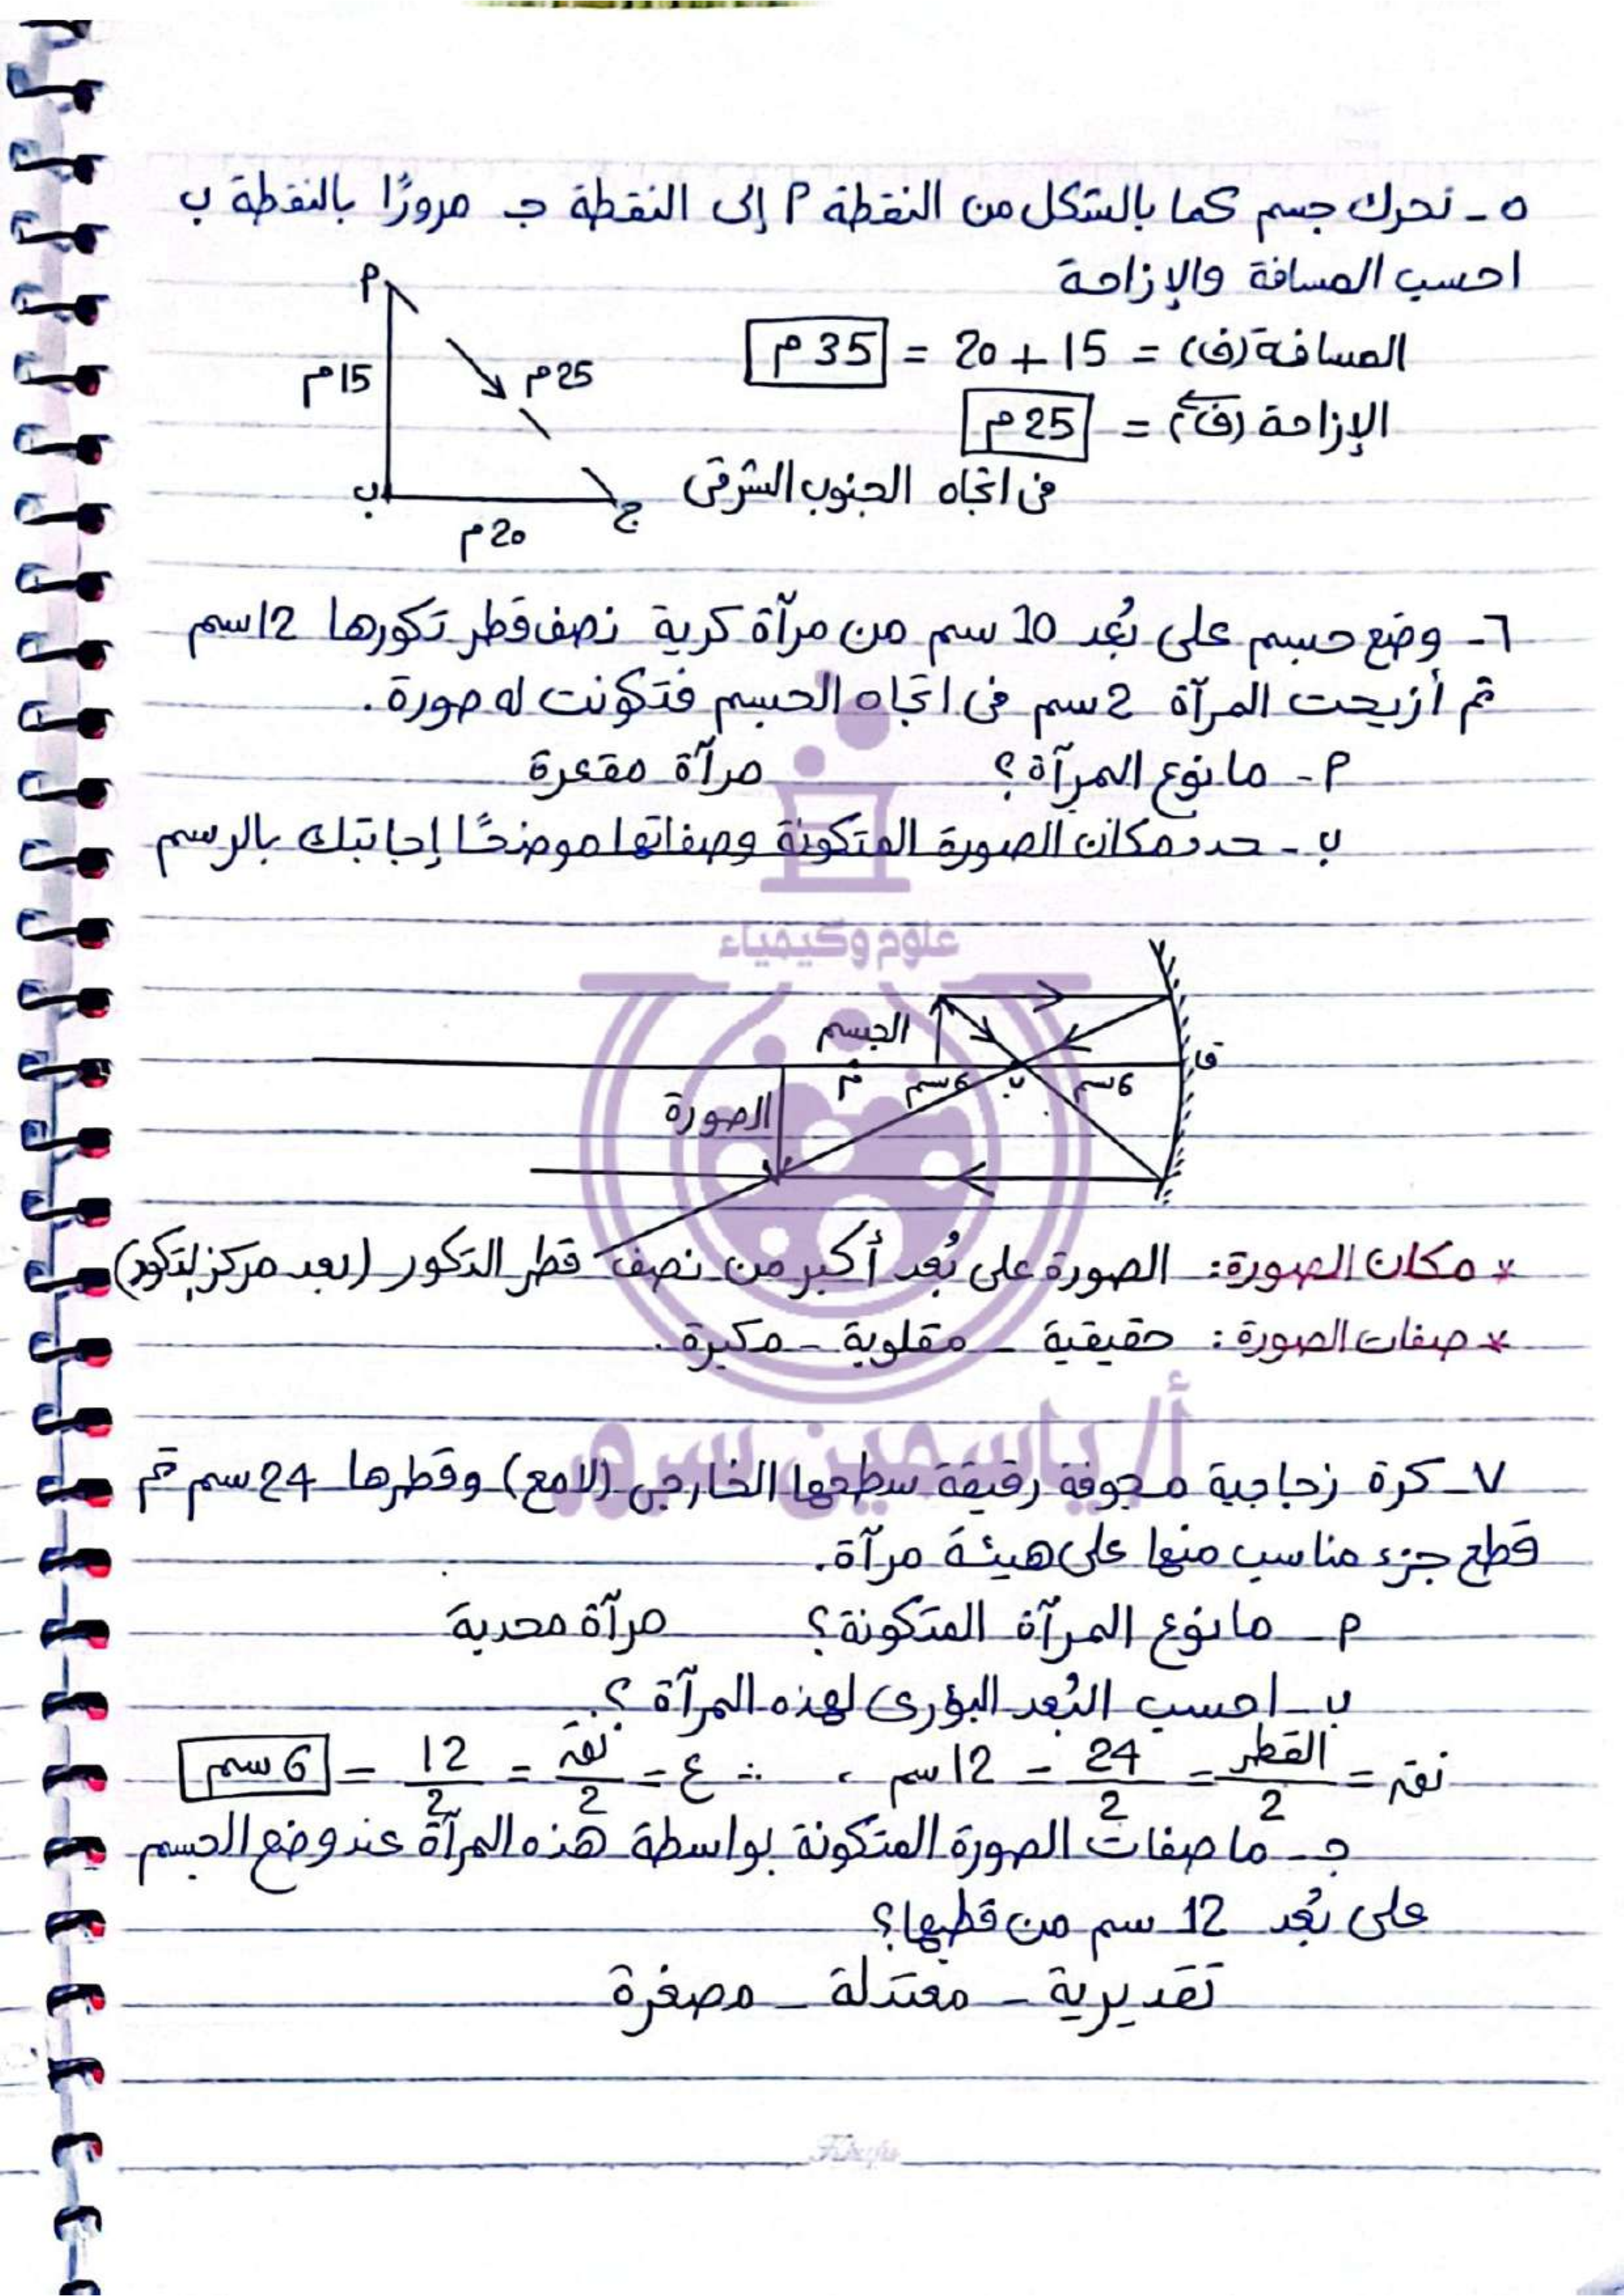 ٥ - تحرك جسم كما بالشكل من النقطة أ إلى النقطة جـ مرورًا بالنقطة ب
احسب المسافة والإزاحة
المسافة (ف) = 15 + 20 = 35 م
الإزاحة (ف) = 25 م
فى اتجاه الجنوب الشرقى
أ
15 م
25 م
ب
ج
20 م
٦ - وضع جسم على بُعد 10 سم من مرآة كرية نصف قطر تكورها 12 سم
ثم أزيحت المرآة 2 سم فى اتجاه الجسم فتكونت له صورة.
أ - ما نوع المرآة؟ مرآة مقعرة
ب - حدد مكان الصورة المتكونة وصفاتها موضحًا إجابتك بالرسم
علوم وكيمياء
الجسم
ق
6 سم
ب
6 سم
م
الصورة
* مكان الصورة: الصورة على بُعد أكبر من نصف قطر التكور (بعد مركز التكور)
* صفات الصورة: حقيقية - مقلوبة - مكبرة.
أ/ ياسمين سرور
٧ - كرة زجاجية مجوفة رقيقة سطحها الخارجى (لامع) وقطرها 24 سم تم
قطع جزء مناسب منها على هيئة مرآة.
أ - ما نوع المرآة المتكونة؟ مرآة محدبة
ب - احسب البُعد البؤرى لهذه المرآة؟
نق = القطر/2 = 24/2 = 12 سم ، ∴ ع = نق/2 = 12/2 = 6 سم
جـ - ما صفات الصورة المتكونة بواسطة هذه المرآة عند وضع الجسم
على بُعد 12 سم من قطبها؟
تقديرية - معتدلة - مصغرة